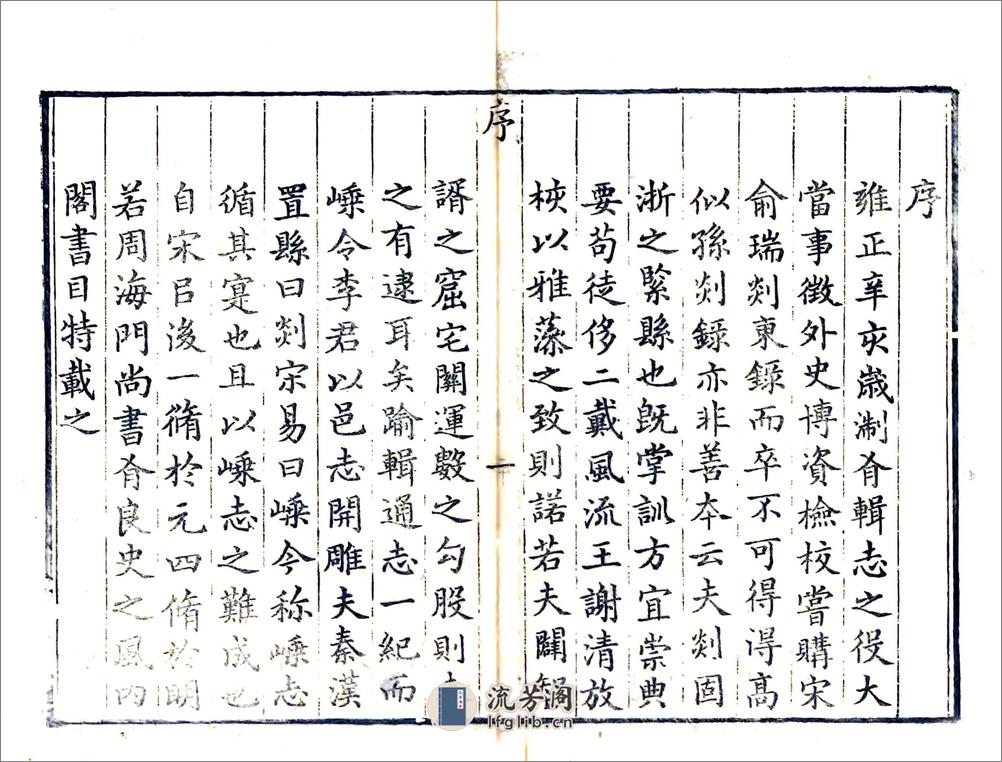 序
雍正辛亥歲浙省輯志之役大
當事徵外史博資檢校嘗購宋
俞瑞剡東錄而卒不可得得高
似孫剡錄亦非善本云夫剡固
浙之緊縣也旣掌訓方宜崇典
要苟徒侈二戴風流王謝清放
梜以雅藻之致則諾若夫關
序
一
諝之窟宅關運數之勾股則
之有逮耳矣踰輯通志一紀而
嵊令李君以邑志開雕夫秦漢
置縣曰剡宋易曰嵊今称嵊志
循其寔也且以嵊志之難成也
自宋呂後一脩於元四脩於明
若周海門尚書肴良史之風內
閣書目特載之
流芳閣
lfglib.cn